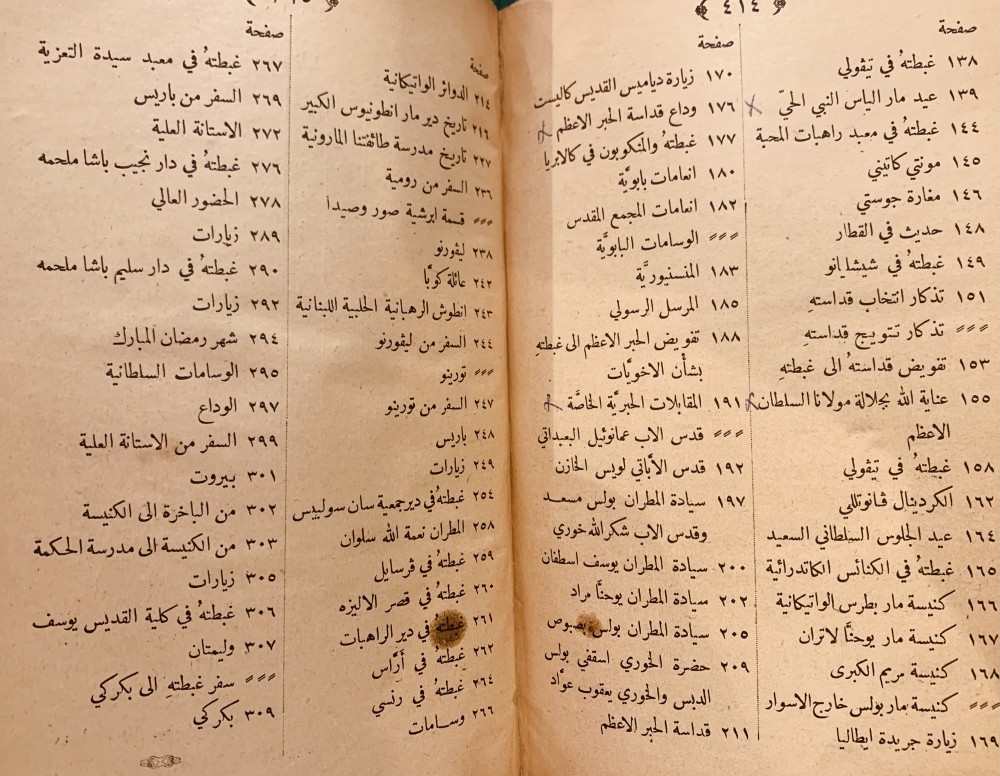 ﴿ ٤١٤ ﴾
صفحة
١٣٨ غبطتهُ في تيڤولي
١٣٩ عيد مار الياس النبي الحيّ
١٤٤ غبطتهُ في معبد راهبات المحبة
١٤٥ مونتي كاتيني
١٤٦ مغارة جوستي
١٤٨ حديث في القطار
١٤٩ غبطتهُ في شيشليانو
١٥١ تذكار انتخاب قداستهِ
〃 تذكار تتويج قداستهِ
١٥٣ تفويض قداستهُ الى غبطتهِ
١٥٥ عناية الله بجلالة مولانا السلطان
الاعظم
١٥٨ غبطتهُ في تيڤولي
١٦٢ الكردينال ڤانوتللي
١٦٤ عيد الجلوس السلطاني السعيد
١٦٥ غبطتهُ في الكنائس الكاتدرائية
١٦٦ كنيسة مار بطرس الواتيكانية
١٦٧ كنيسة مار يوحنَّا لاتران
١٦٨ كنيسة مريم الكبرى
〃 كنيسة مار بولس خارج الاسوار
١٦٩ زيارة جريدة ايطاليا
صفحة
١٧٠ زيارة دياميس القديس كاليست
١٧٦ وداع قداسة الحبر الاعظم
١٧٧ غبطتهُ والمنكوبون في كالابريا
١٨٠ انعامات بابويَّة
١٨٢ انعامات المجمع المقدس
〃 الوسامات البابويَّة
١٨٣ المنسنيوريَّة
١٨٥ المرسل الرسولي
١٨٨ تفويض الحبر الاعظم الى غبطتهِ
بشأن الاخويَّات
١٩١ المقابلات الحبريَّة الخاصَّة
〃 قدس الاب عمانوئيل البعبداتي
١٩٢ قدس الأباتي لويس الخازن
١٩٧ سيادة المطران بولس مسعد
وقدس الاب شكرالله خوري
٢٠٠ سيادة المطران يوسف اسطفان
٢٠٢ سيادة المطران يوحنَّا مراد
٢٠٥ سيادة المطران بولس بصبوص
٢٠٩ حضرة الخوري اسقفي بولس
الدبس والخوري يعقوب عوَّاد
٢١١ قداسة الحبر الاعظم
صفحة
٢١٤ الدوائر الواتيكانية
٢١٦ تاريخ دير مار انطونيوس الكبير
٢٢٧ تاريخ مدرسة طائفتنا المارونية
٢٣٦ السفر من رومية
〃 قسمة ابرشية صور وصيدا
٢٣٨ ليڤورنو
٢٤٢ عائلة كوبَّا
٢٤٣ انطوش الرهبانية الحلبية اللبنانية
٢٤٤ السفر من ليڤورنو
〃 تورينو
٢٤٧ السفر من تورينو
٢٤٨ باريس
٢٤٩ زيارات
٢٥٤ غبطتهُ في دير جمعية سان سولبيس
٢٥٨ المطران نعمة الله سلوان
٢٥٩ غبطتهُ في ڤرسايل
٢٦٠ غبطتهُ في قصر الاليزه
٢٦١ غبطتهُ في دير الراهبات
٢٦٢ غبطتهُ في أرَّاس
٢٦٤ غبطتهُ في رنسي
٢٦٦ وسامات
صفحة
٢٦٧ غبطتهُ في معبد سيدة التعزية
٢٦٩ السفر من باريس
٢٧٢ الاستانة العلية
٢٧٦ غبطتهُ في دار نجيب باشا ملحمه
٢٧٨ الحضور العالي
٢٨٩ زيارات
٢٩٠ غبطتهُ في دار سليم باشا ملحمه
٢٩٢ زيارات
٢٩٤ شهر رمضان المبارك
٢٩٥ الوسامات السلطانية
٢٩٧ الوداع
٢٩٩ السفر من الاستانة العلية
٣٠١ بيروت
٣٠٢ من الباخرة الى الكنيسة
٣٠٣ من الكنيسة الى مدرسة الحكمة
٣٠٥ زيارات
٣٠٦ غبطتهُ في كلية القديس يوسف
٣٠٧ وليمتان
〃 سفر غبطتهِ الى بكركي
٣٠٩ بكركي